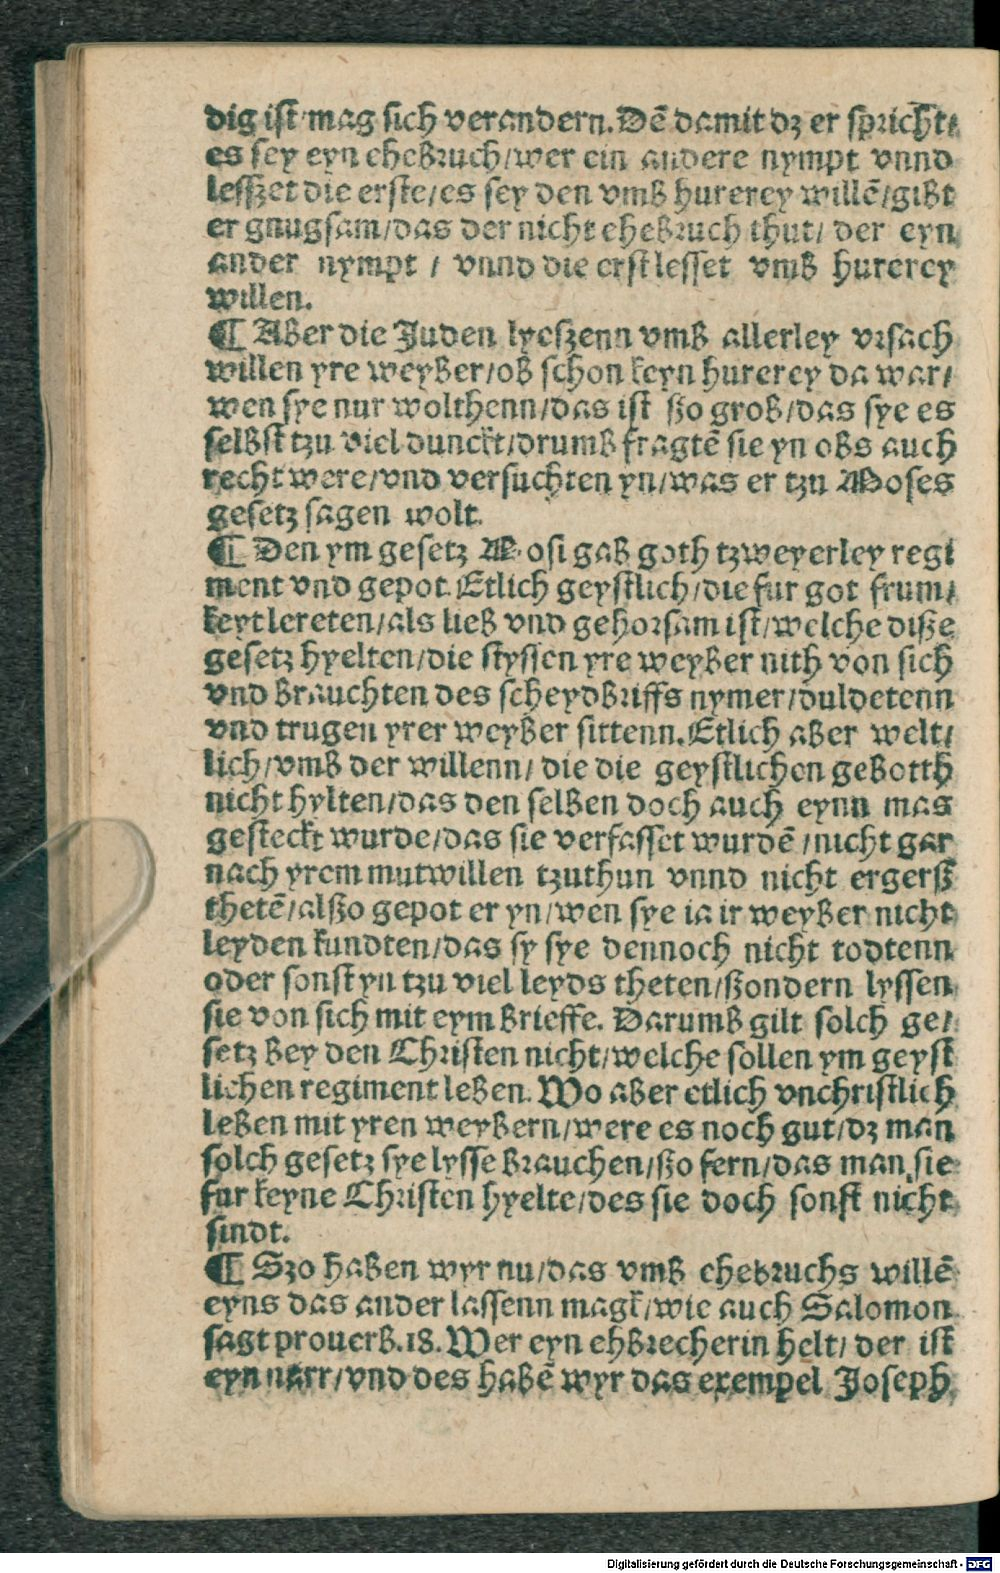 dig ist mag sich verandern. Dē damit dz er spricht/
es sey eyn ehebruch/wer ein andere nympt vnnd
lesszet die erste/es sey den vmb hurerey willē/gibt
er gnugsam/das der nicht ehebruch thut/ der eyn
ander nympt / vnnd die erst lesset vmb hurerey
willen.
¶ Aber die Juden lyeszenn vmb allerley vrsach
willen yre weyber/ob schon keyn hurerey da war/
wen sye nur wolthenn/das ist ßo grob/das sye es
selbst tzu viel dunckt/drumb fragtē sie yn obs auch
recht were/vnd versuchten yn/was er tzu Moses
gesetz sagen wolt.
¶ Den ym gesetz Mosi gab goth tzweyerley regi
ment vnd gepot. Etlich geystlich/die fur got frum/
keyt lereten/als lieb vnd gehorsam ist/welche diße
gesetz hyelten/die styssen yre weyber nith von sich
vnd brauchten des scheydbriffs nymer/duldetenn
vnd trugen yrer weyber sittenn. Etlich aber welt/
lich/vmb der willenn/ die die geystlichen gebotth
nicht hylten/das den selben doch auch eynn mas
gesteckt wurde/das sie verfasset wurdē/nicht gar
nach yrem mutwillen tzuthun vnnd nicht ergerß
thetē/alßo gepot er yn/wen sye ia ir weyber nicht
leyden kundten/das sy sye dennoch nicht todtenn
oder sonst yn tzu viel leyds theten/ßondern lyssen
sie von sich mit eym brieffe. Darumb gilt solch ge/
setz bey den Christen nicht/welche sollen ym geyst
lichen regiment leben. Wo aber etlich vnchristlich
leben mit yren weybern/were es noch gut/dz man
solch gesetz sye lysse brauchen/ßo fern/das man sie
fur keyne Christen hyelte/des sie doch sonst nicht
sindt.
¶ Szo haben wyr nu/das vmb ehebruchs willē
eyns das ander lassenn magk/wie auch Salomon
sagt prouerb.18. Wer eyn ehbrecherin helt/ der ist
eyn narr/vnd des habē wyr das exempel Joseph
Digitalisierung gefördert durch die Deutsche Forschungsgemeinschaft - DFG